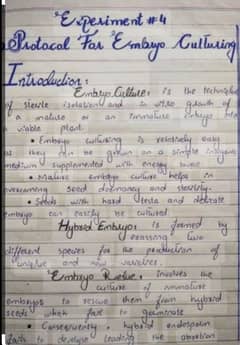 Experiment # 4
Protocol For Embryo Culturing
Introduction:
Embryo Culture: is the technique
of sterile isolation and in vitro growth of
a mature or an immature embryo into
a viable plant.
• Embryo culturing is relatively easy
as they can be grown on a simple inorganic
medium supplemented with energy source
• Mature embryo culture helps in
overcoming seed dormancy and sterility.
• Seeds with hard testa and delicate
embryo can easily be cultured.
Hybrid Embryo: is formed by
crossing two
different species for the production of
unique and new varieties.
Embryo Rescue: involves the
culture of immature
embryos to rescue them from hybrid
seeds which fail to germinate
• Consequently, hybrid endosperm
fails to develop leading the abortion